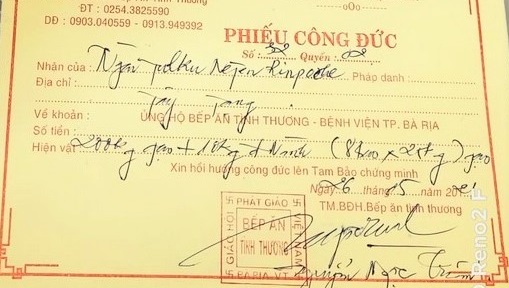 Bếp Ăn Tình Thương
ĐT : 0254.3825590
DĐ : 0903.040559 - 0913.949392
oOo
PHIẾU CÔNG ĐỨC
Số : 32 Quyển : 02
Nhận của : Pháp danh :
Địa chỉ :
Về khoản : ỦNG HỘ BẾP ĂN TÌNH THƯƠNG - BỆNH VIỆN TP. BÀ RỊA
Số tiền :
Hiện vật 200kg gạo + 10kg đ Nành (8 bao x 25kg) gạo
Xin hồi hướng công đức lên Tam Bảo chứng minh
Ngày 26 tháng 15 năm 20
TM.BĐH.Bếp ăn tình thương
PHẬT GIÁO
GIÁO HỘI
VIỆT NAM
BẾP ĂN
TÌNH THƯƠNG
BÀ RỊA-VT
Nguyễn Ngọc
Reno2 F